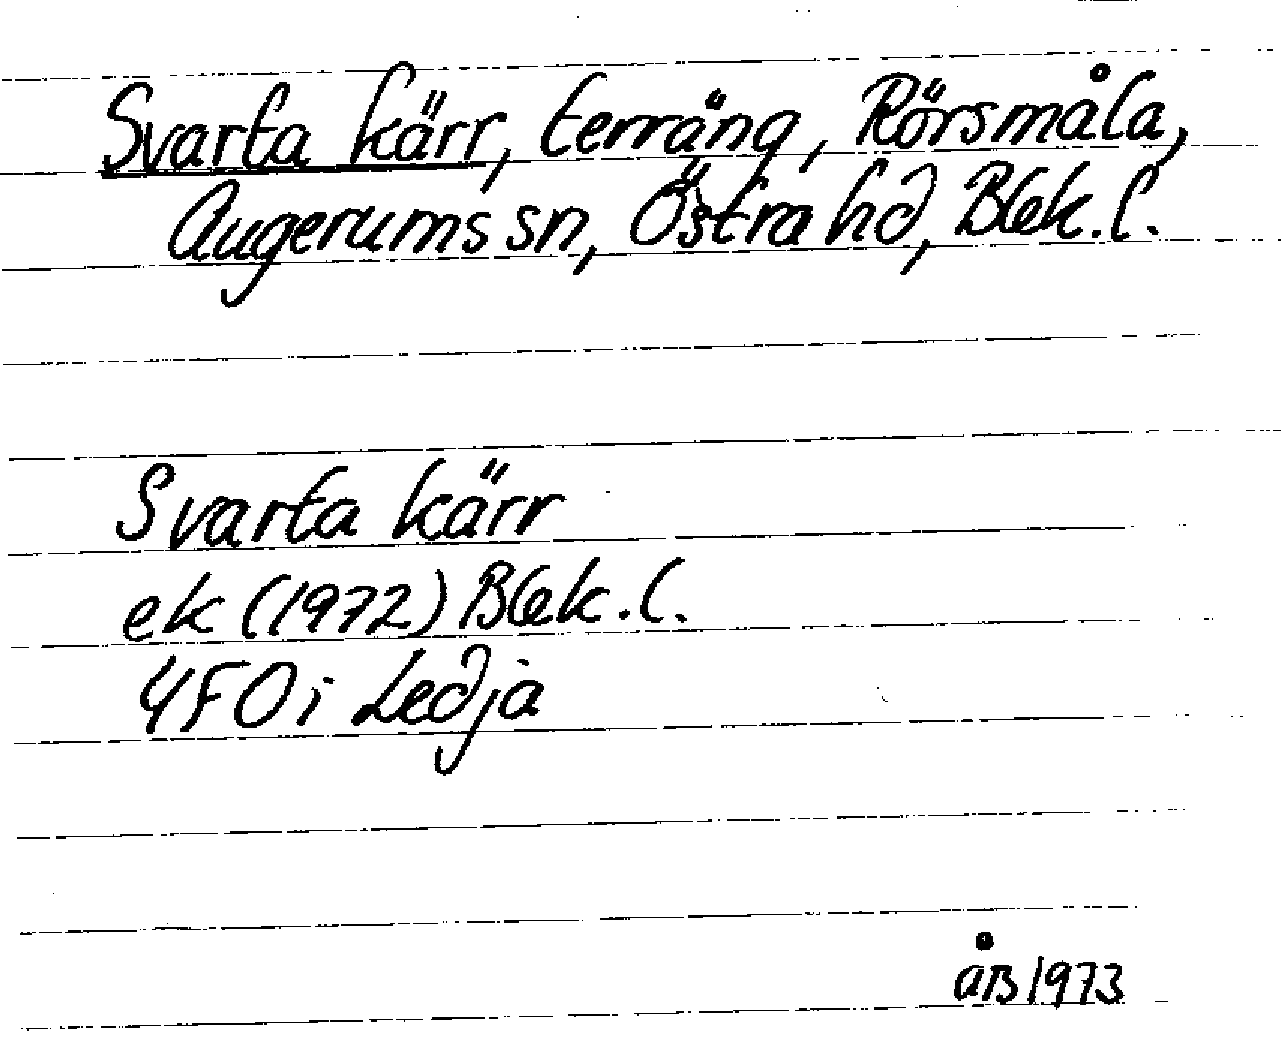 Svarta kärr, terräng, Rörsmåla,
Augerums sn, Östra hd, Blek. l.
Svarta kärr
ek (1972) Blek. l.
4F0i Ledja
åB 1973